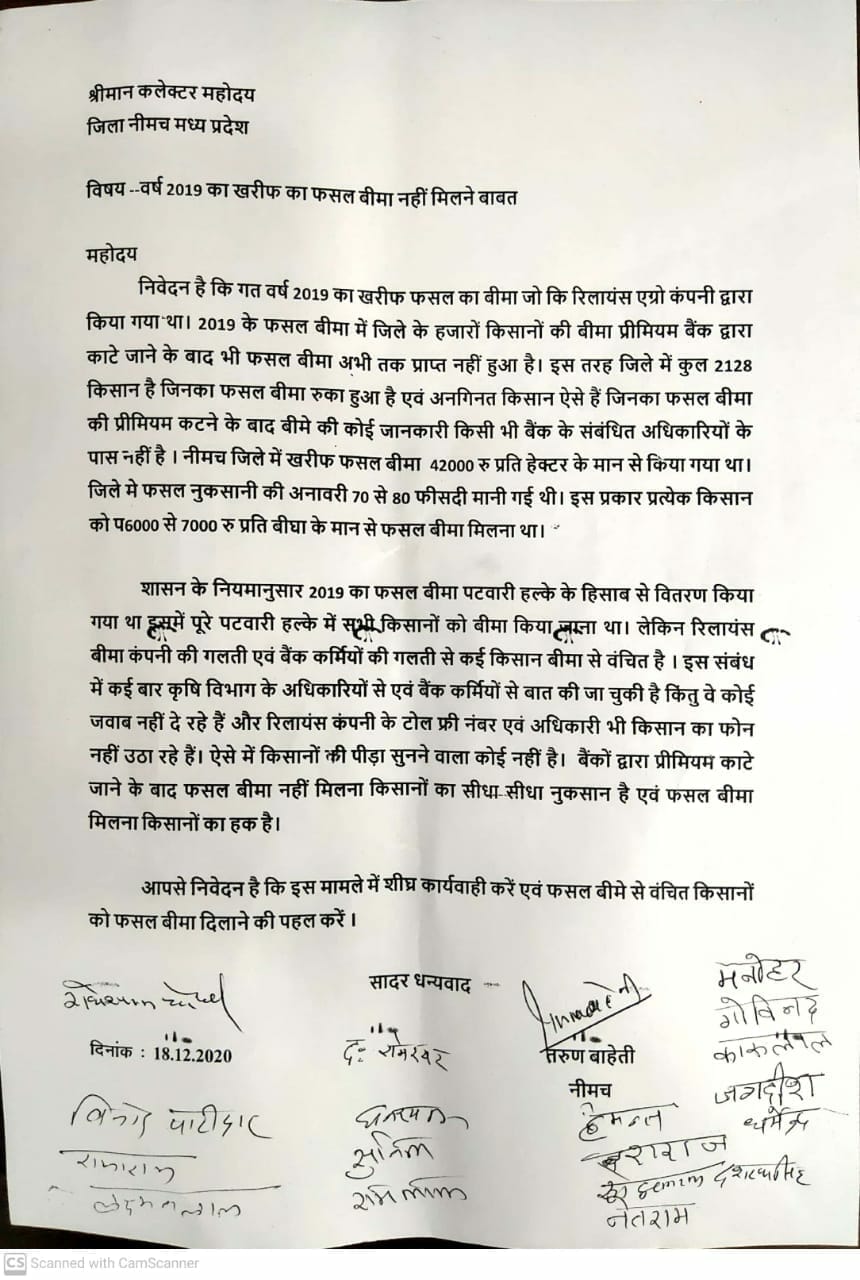 श्रीमान कलेक्टर महोदय
जिला नीमच मध्य प्रदेश
विषय --वर्ष 2019 का खरीफ का फसल बीमा नहीं मिलने बाबत
महोदय
निवेदन है कि गत वर्ष 2019 का खरीफ फसल का बीमा जो कि रिलायंस एग्रो कंपनी द्वारा
किया गया था। 2019 के फसल बीमा में जिले के हजारों किसानों की बीमा प्रीमियम बैंक द्वारा
काटे जाने के बाद भी फसल बीमा अभी तक प्राप्त नहीं हुआ है। इस तरह जिले में कुल 2128
किसान है जिनका फसल बीमा रुका हुआ है एवं अनगिनत किसान ऐसे हैं जिनका फसल बीमा
की प्रीमियम कटने के बाद बीमे की कोई जानकारी किसी भी बैंक के संबंधित अधिकारियों के
पास नहीं है । नीमच जिले में खरीफ फसल बीमा 42000 रु प्रति हेक्टर के मान से किया गया था।
जिले मे फसल नुकसानी की अनावरी 70 से 80 फीसदी मानी गई थी। इस प्रकार प्रत्येक किसान
को प6000 से 7000 रु प्रति बीघा के मान से फसल बीमा मिलना था।
शासन के नियमानुसार 2019 का फसल बीमा पटवारी हल्के के हिसाब से वितरण किया
गया था इसमें पूरे पटवारी हल्के में सभी किसानों को बीमा किया जाना था। लेकिन रिलायंस
बीमा कंपनी की गलती एवं बैंक कर्मियों की गलती से कई किसान बीमा से वंचित है । इस संबंध
में कई बार कृषि विभाग के अधिकारियों से एवं बैंक कर्मियों से बात की जा चुकी है किंतु वे कोई
जवाब नहीं दे रहे हैं और रिलायंस कंपनी के टोल फ्री नंबर एवं अधिकारी भी किसान का फोन
नहीं उठा रहे हैं। ऐसे में किसानों की पीड़ा सुनने वाला कोई नहीं है। बैंकों द्वारा प्रीमियम काटे
जाने के बाद फसल बीमा नहीं मिलना किसानों का सीधा-सीधा नुकसान है एवं फसल बीमा
मिलना किसानों का हक है।
आपसे निवेदन है कि इस मामले में शीघ्र कार्यवाही करें एवं फसल बीमे से वंचित किसानों
को फसल बीमा दिलाने की पहल करें ।
सादर धन्यवाद
मनोहर
गोविन्द
दिनांक : 18.12.2020
द: रामेश्वर
तरुण बाहेती
नीमच
जगदीश
धर्मेन्द्र
विनोद पाटीदार
हेमन्त
सुनिल
रामलाल
दशरथसिंह
नेतराम
CS Scanned with CamScanner